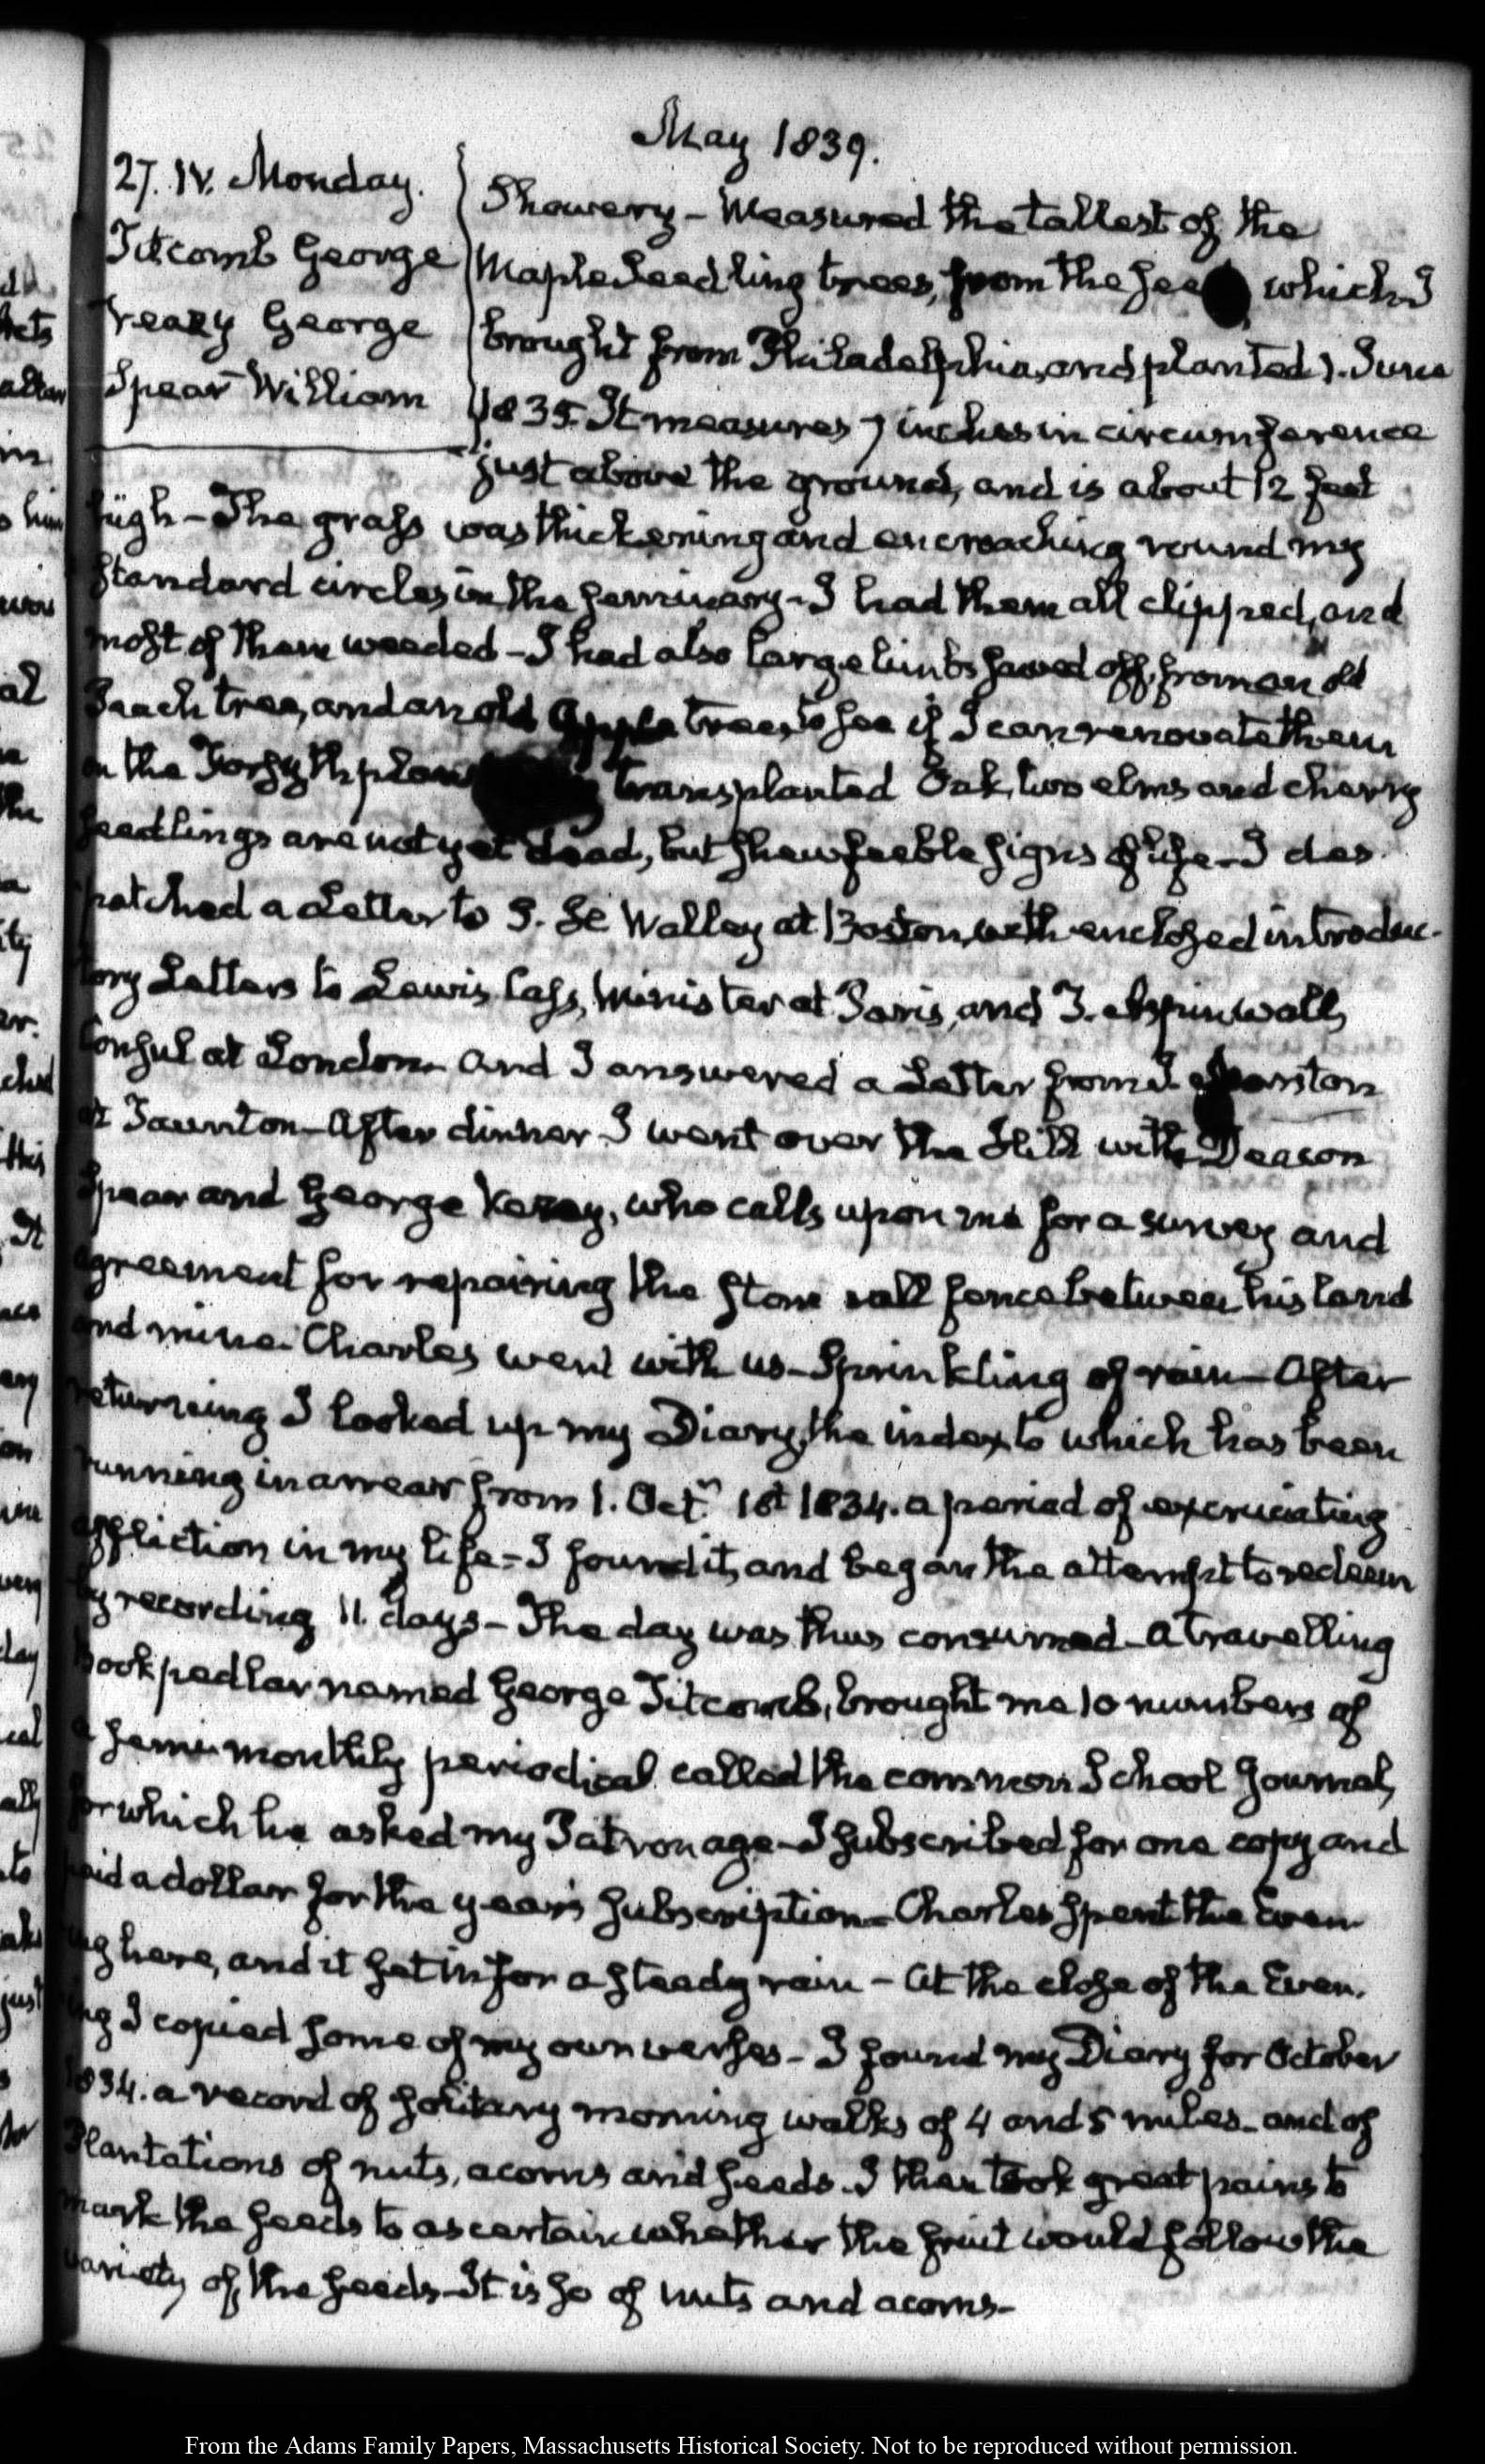 May 1839.
27. IV. Monday.
Titcomb George
Veazy George
Spear William
Showery – Measured the tallest of the
Maple Seedling trees, from the which I
brought from Philadelphia, and planted 1. June
1835. It measures 7 inches in circumference
just above the ground, and is about 12 feet
high – The grass was thickening and encroaching round my
standard circles in the seminary – I had them all clipped, and
most of them weeded – I had also large limbs sawed off, from an old
Peach tree, and an old Apple tree, to see if I can renovate them
on the Forsyth plan transplanted Oak, two elms and cherry
seedlings are not yet dead, but shew feeble signs of life – I des
patched a Letter to S. Walley at Boston, with enclosed introduc-
tory Letters to Lewis Cass, Minister at Paris, and T. Aspinwall,
Consul at London – and I answered a Letter from
at Taunton – After dinner I went over the Hill with Deacon
Spear and George Veazy, who calls upon me for a survey and
agreement for repairing the stone wall fence between his land
and mine – Charles went with us – Sprinkling of rain – After
returning I looked up my Diary, the index to which has been
running in arrear from 1. Octr. 1834. a period of excruciating
affliction in my life – I found it, and began the attempt to redeem
by recording 11. days – The day was thus consumed – A travelling
book pedlar named George Titcomb, brought me 10 numbers of
a semi-monthly periodical called the common School Journal,
for which he asked my Patronage – I subscribed for one copy and
paid a dollar for the year's subscription – Charles spent the Even
ing here, and it set in for a steady rain – At the close of the Even.
ing I copied some of my own verses – I found my Diary for October
1834. a record of solitary morning walks of 4 and 5 miles – and of
Plantations of nuts, acorns and seeds. I then took great pains to
mark the seeds to ascertain whether the fruit would follow the
variety of the seeds – It is so of nuts and acorns –
From the Adams Family Papers, Massachusetts Historical Society. Not to be reproduced without permission.